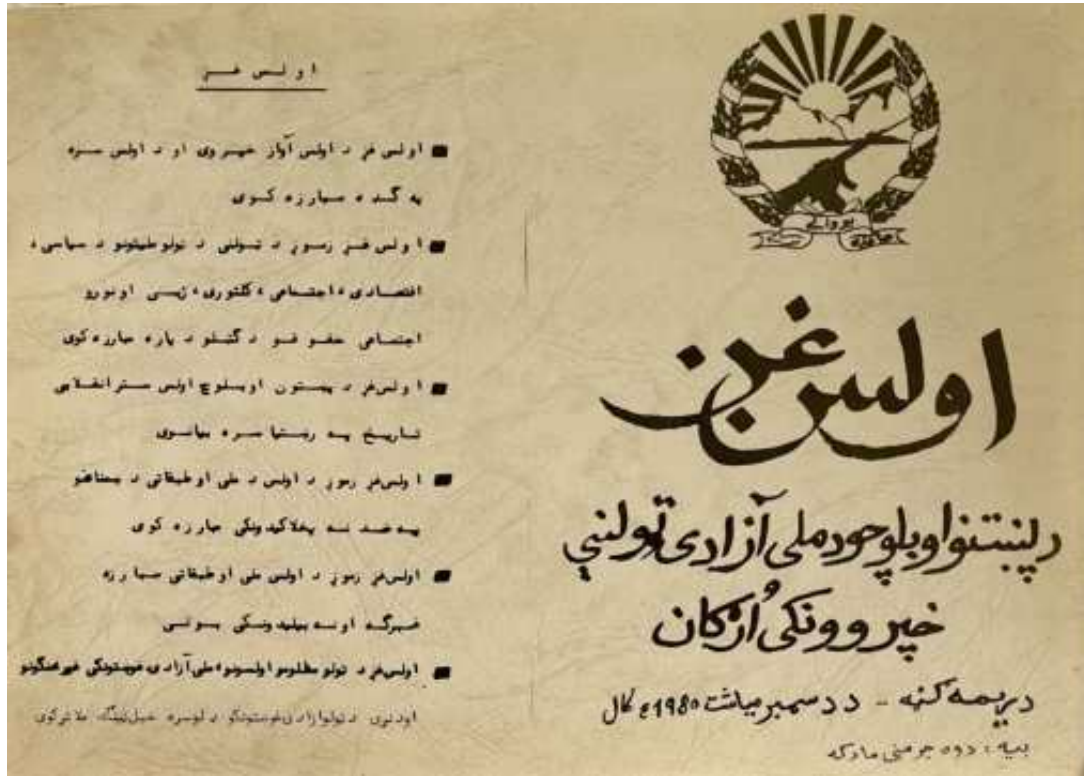 اولس غږ
د پښتنو او بلوچو د ملی آزادۍ ټولنې
خپروونکی اُرګان
دریمه ګڼه - د دسمبر میاشت ۱۹۸۰ع کال
بیه: دوه جرمنی مارکه
اولس غږ
اولس غږ د اولس آواز خپروی او د اولس سره
په ګډه مبارزه کوی
اولس غږ زموږ د ټولنی د ټولو طبقاتو د سیاسی،
اقتصادی، اجتماعی، کلتوری، ژبنی او نورو
اجتماعی حقوقو د ګټلو د پاره مبارزه کوی
اولس غږ د پښتون او بلوچ اولس ستر انقلابی
تاریخ په رښتیا سره بیانوی
اولس غږ زموږ د اولس د ملی او طبقاتی دښمنانو
په ضد نه پخلاکیدونکی مبارزه کوی
اولس غږ زموږ د اولس ملی او طبقاتی مبارزه
څرګنده او نه بیلیدونکی بولی
اولس غږ د ټولو مظلومو اولسونو، ملی آزادی غوښتونکی غورځنګونو
او د نړی د ټولو آزادی غوښتونکو د لوسره خپل ملاتړ کوی